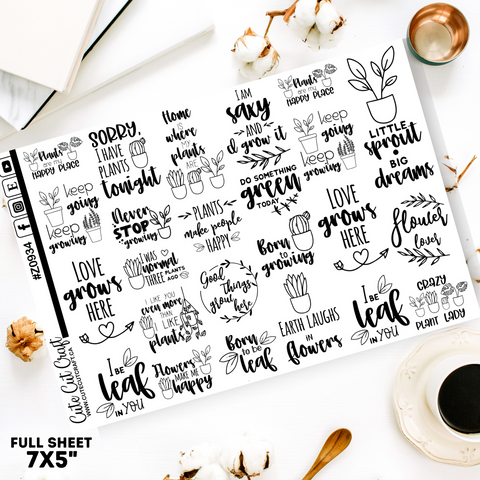 Plants
are my
HAPPY PLACE
keep
going
keep
growing
LOVE
grows
HERE
I BE
leaf
IN YOU
SORRY,
I HAVE
PLANTS
tonight
Never
STOP
growing
I WAS
normal
THREE PLANTS
AGO
I LIKE YOU
even more
THAN
I LIKE
plants
Flowers
MAKE ME
happy
Home
is
where
my
plants
are
PLANTS
make people
HAPPY
Good
Things
grow
here
Born
to be
leaf
I AM
saxy
AND
I grow it
DO SOMETHING
green
TODAY
Born
to
growing
EARTH LAUGHS
in
flowers
Plants
are my
HAPPY PLACE
keep
going
keep
growing
LOVE
grows
HERE
I BE
leaf
IN YOU
LITTLE
sprout
BIG
dreams
flower
lover
CRAZY
PLANT LADY
#Z0934
Cute Cut Craft
WWW.CUTECUTCRAFT.CA
FULL SHEET
7X5"